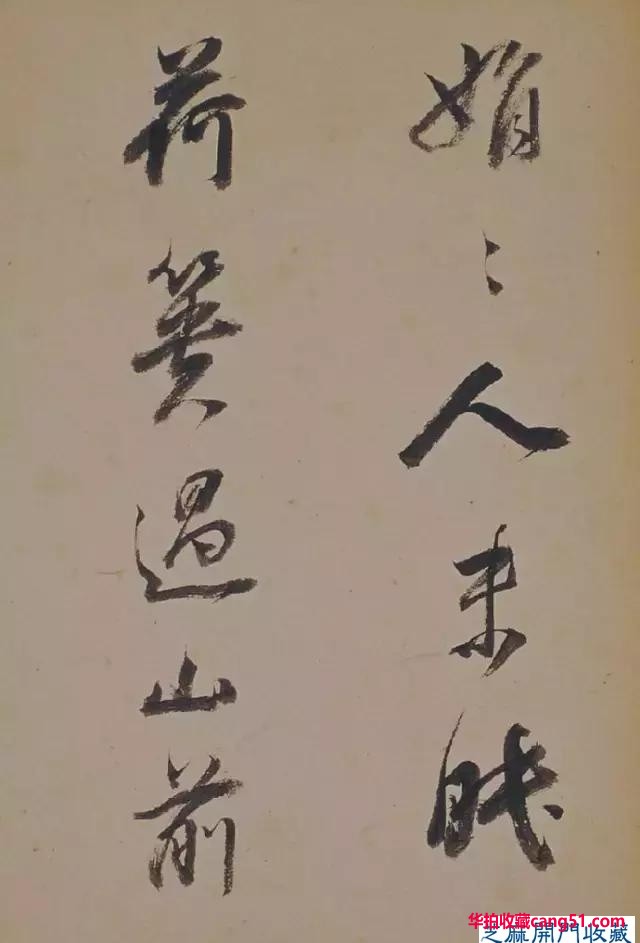 娟〻人未眠
荷蕢過山前
华拍收藏cang51.com
芝麻開門收藏